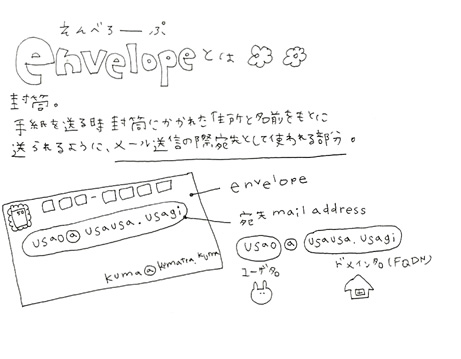 えんべろーぷ
envelopeとは
封筒。
手紙を送る時封筒にかかれた住所と名前をもとに
送られるように、メール送信の際宛先として使われる部分。
envelope
宛先mail address
usao@usausa.usagi
usao@usausa.usagi
ユーザ名
ドメイン名(FQDN)